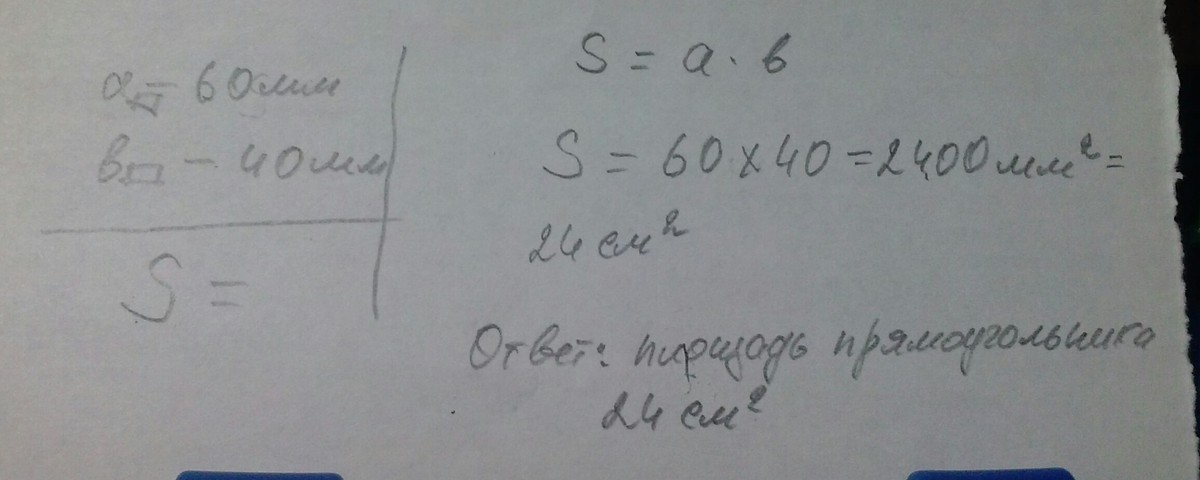 a▱ – 60мм
в▭ – 40мм
S =
S = a · в
S = 60 × 40 = 2400 мм² =
24 см²
Ответ: площадь прямоугольника
24 см²